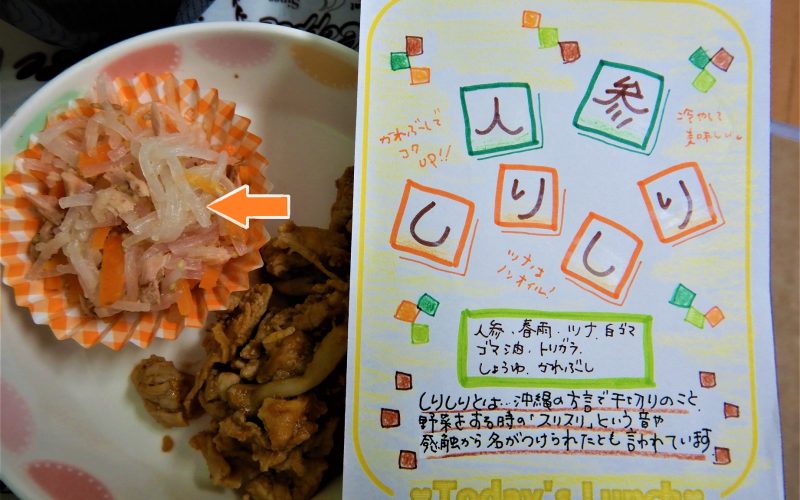 人参
しりしり
かわぶーしで
コク
UP!!
冷やして
美味しい
ツナは
ノンオイル!
人参、春雨、ツナ、白ゴマ
ゴマ油、トリガラ、
しょうゆ、かわぶし
しりしりとは…沖縄の方言で千切りのこと。
野菜をする時の「スリスリ」という音や
感触から名がつけられたとも言われています。
♥Today's Lunch♥